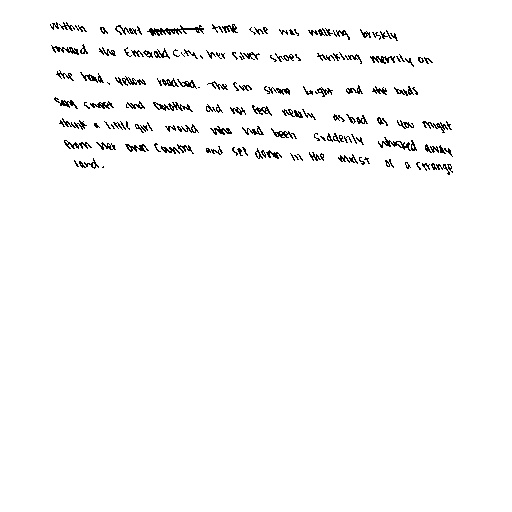 within a short time she was walking briskly
toward the Emerald City, her silver shoes tinkling merrily on
the hard, yellow roadbed. The sun shone bright and the birds
sang sweet and Dorothy did not feel nearly as bad as you might
think a little girl would who had been suddenly whisked away
from her own country and set down in the midst of a strange
land.